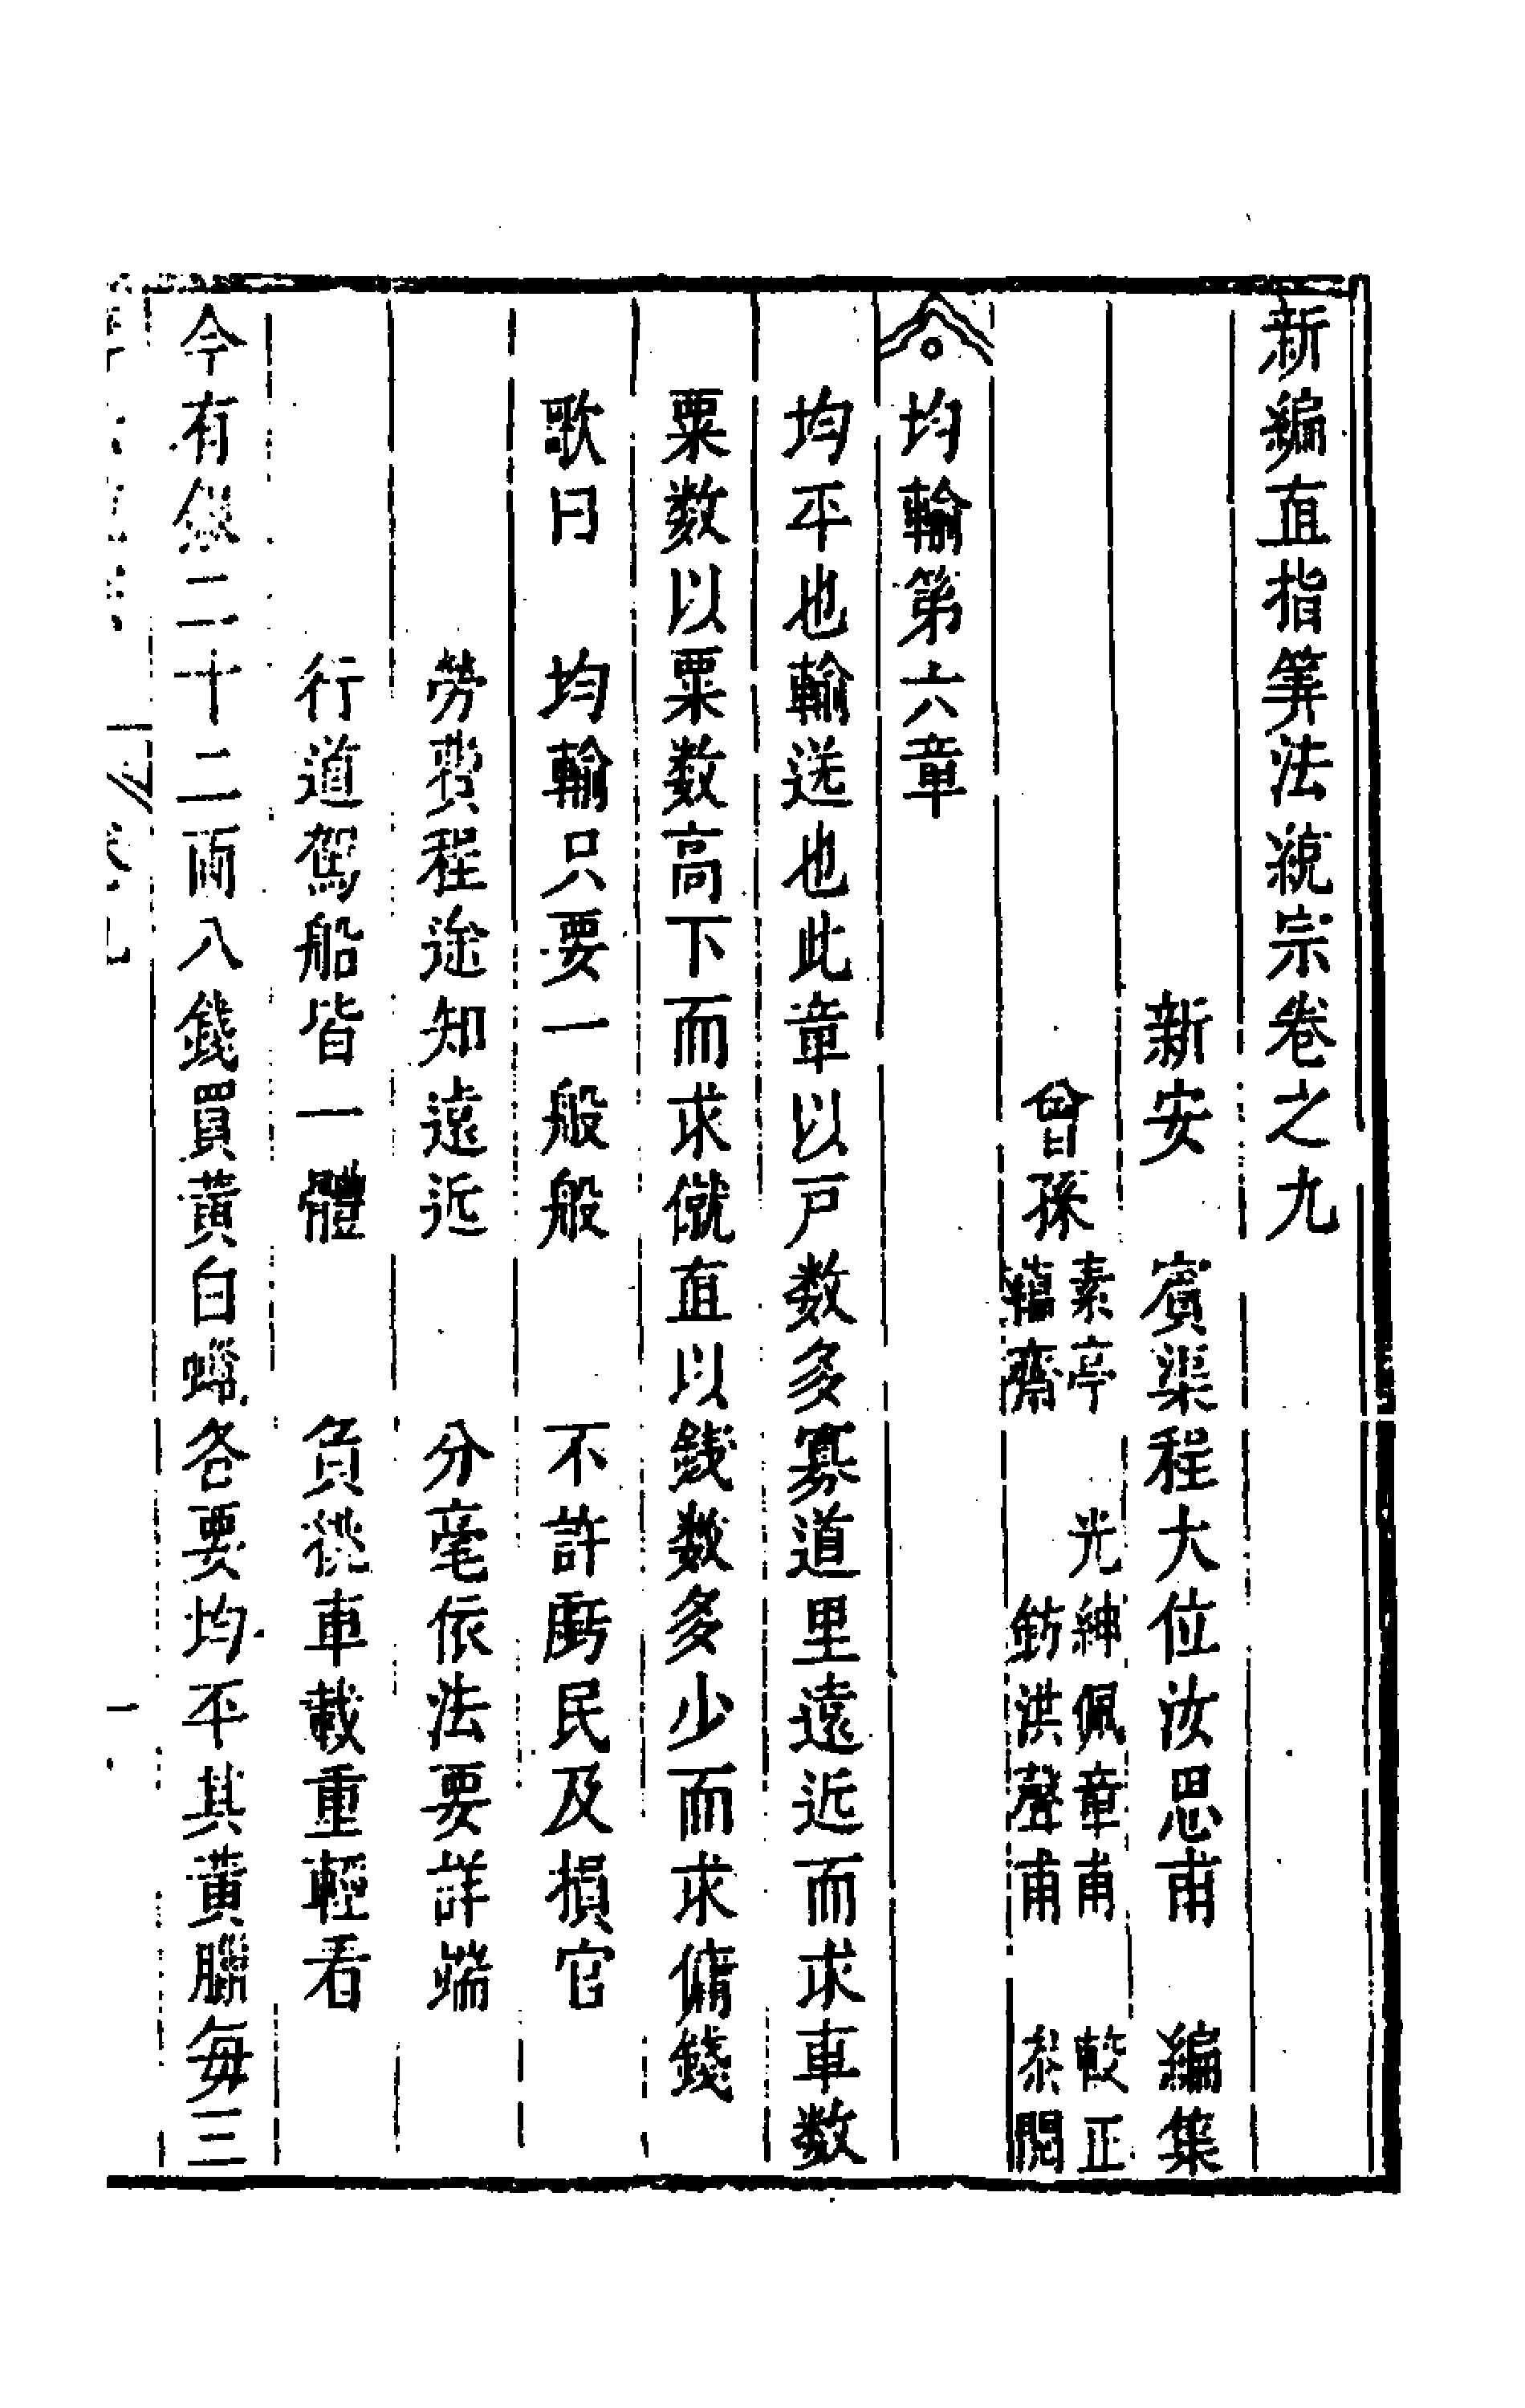 新編直指筭法統宗卷之九
新安　賓渠程大位汝思甫　編集
曾孫
素亭　光紳佩章甫　較正
蘊齋　鈁洪聲甫　叅閱
均輸第六章
均平也輸送也此章以戸数多寡道里遠近而求車数
粟数以粟数高下而求僦直以錢数多少而求傭錢
歌曰　均輸只要一般般　不許虧民及損官
勞費程途知遠近　分毫依法要詳端
行道駕船皆一體　負從車載重輕看
今有銀二十二兩八錢買黃白蠟各要均平其黃臘每三